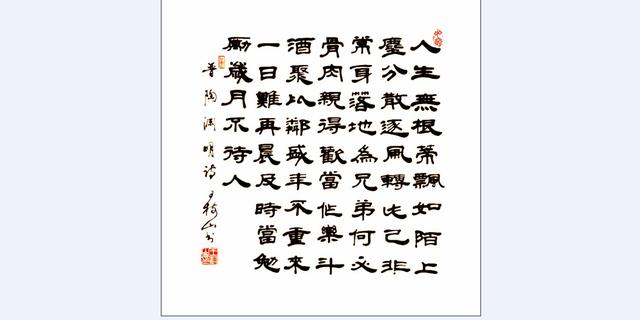 人生無根蒂飄如陌上
塵分散逐風轉此已非
常身落地為兄弟何必
骨肉親得歡當作樂斗
酒聚比鄰盛年不重來
一日難再晨及時當勉
勵歲月不待人
晉陶渊明詩